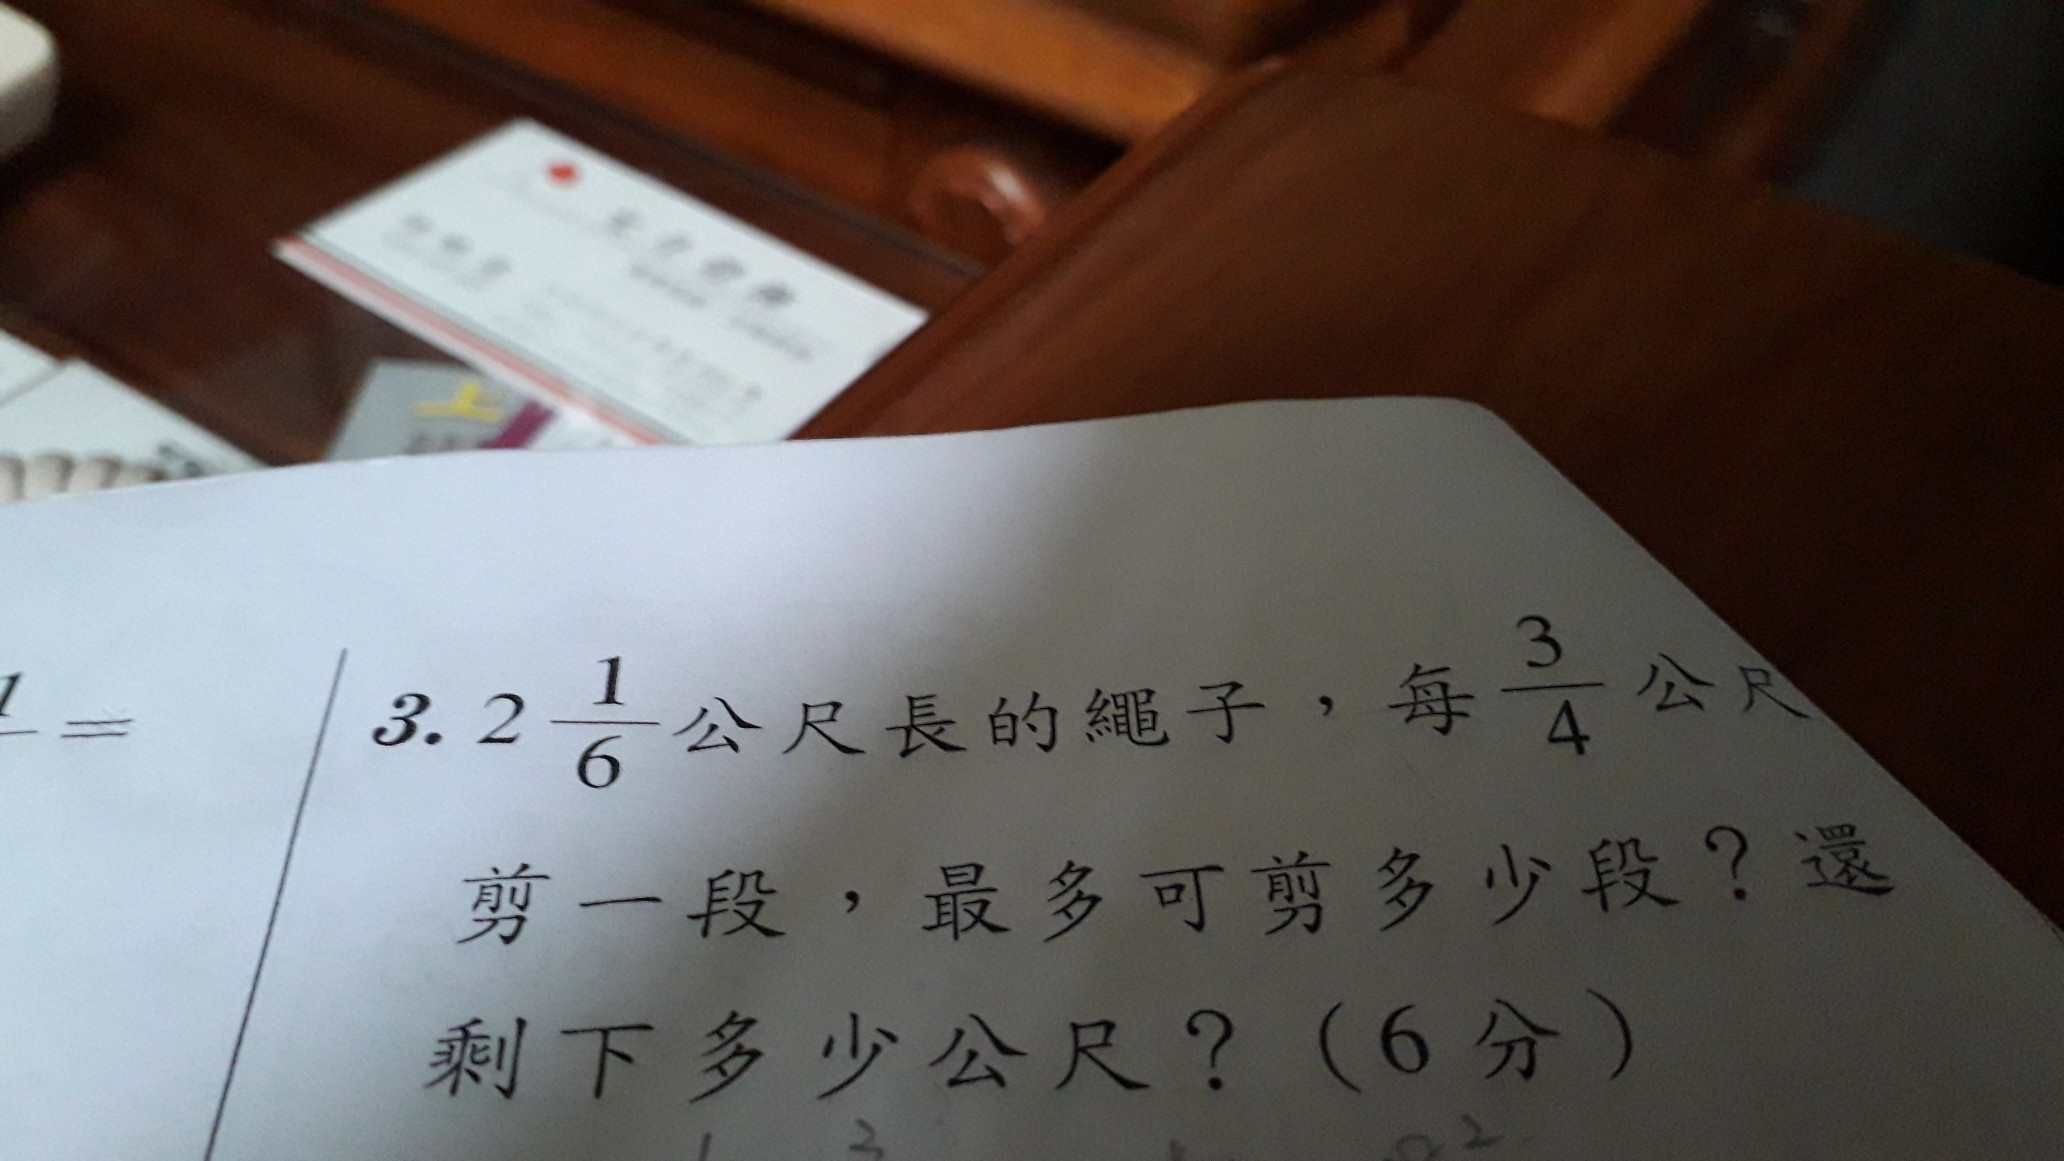 1/ =
3. 2 1/6 公尺長的繩子，每 3/4 公尺
剪一段，最多可剪多少段？還
剩下多少公尺？（6分）